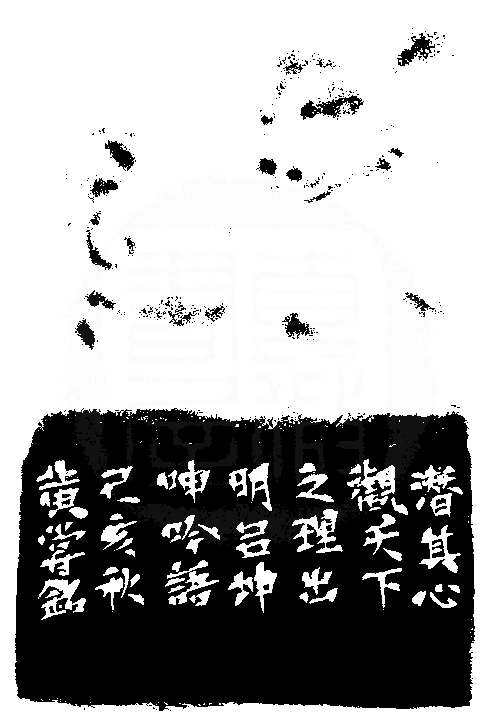 潛其心
觀天下
之理出
明呂坤
呻吟語
己亥秋
黃嘗銘